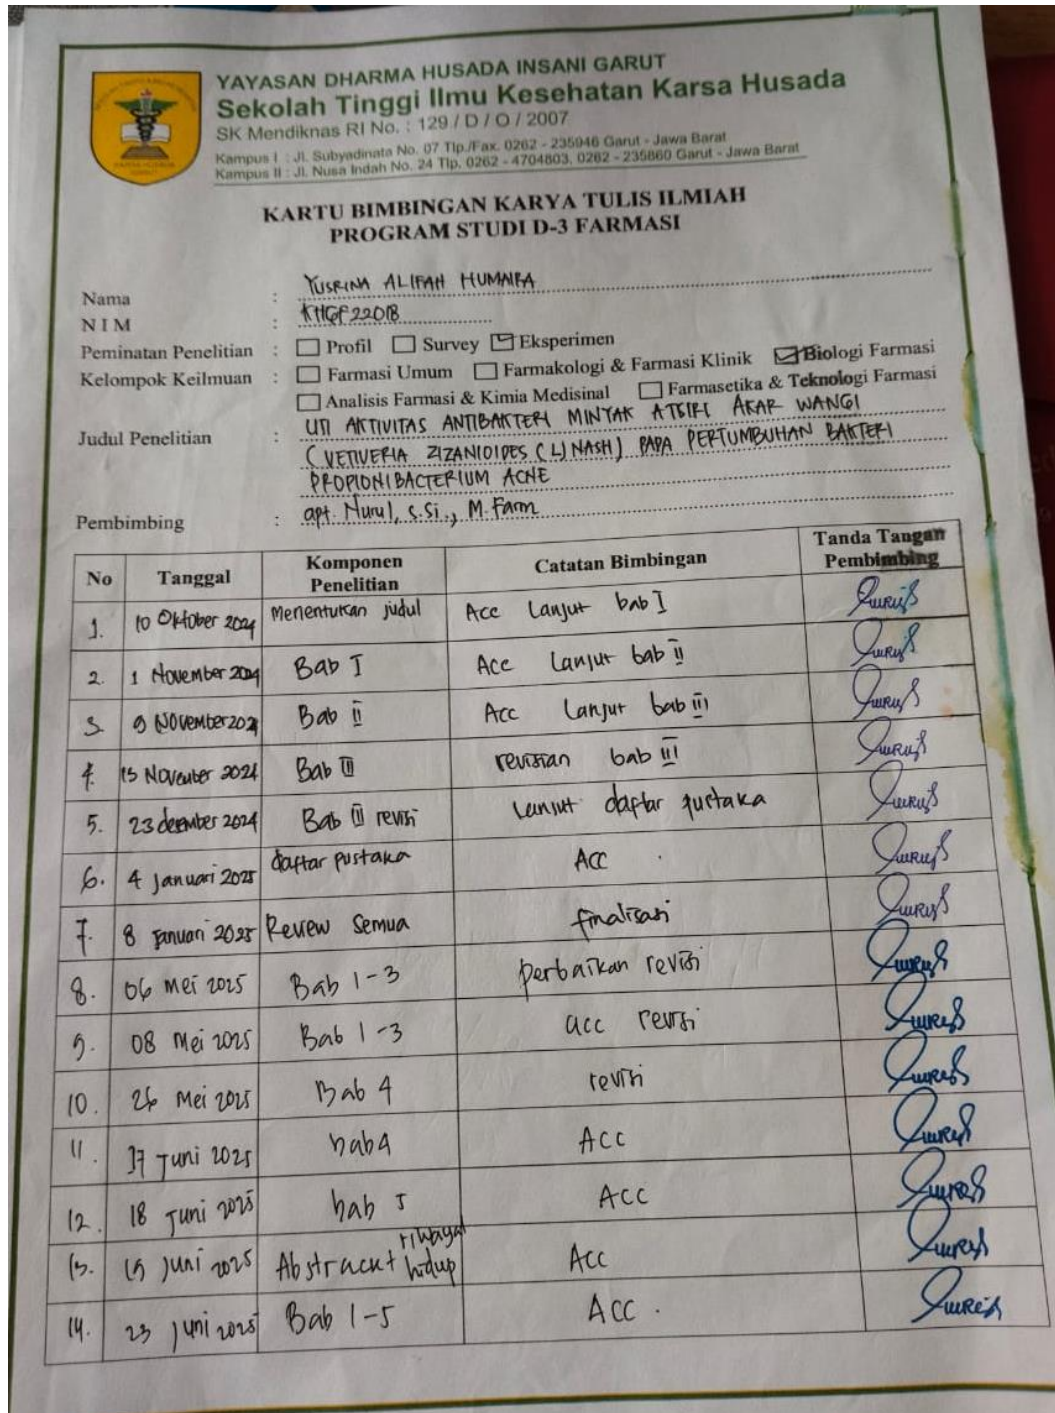 YAYASAN DHARMA HUSADA INSANI GARUT
Sekolah Tinggi Ilmu Kesehatan Karsa Husada
SK Mendiknas RI No. : 129 / D / O / 2007
Kampus I : Jl. Subyadinata No. 07 Tlp./Fax. 0262 - 235946 Garut - Jawa Barat
Kampus II : Jl. Nusa Indah No. 24 Tlp. 0262 - 4704803, 0262 - 235860 Garut - Jawa Barat
KARTU BIMBINGAN KARYA TULIS ILMIAH
PROGRAM STUDI D-3 FARMASI
Nama : YUSRINA ALIFAH HUMAIRA
NIM : KHGF22018
Peminatan Penelitian : Profil Survey Eksperimen
Kelompok Keilmuan : Farmasi Umum Farmakologi & Farmasi Klinik Biologi Farmasi
Analisis Farmasi & Kimia Medisinal Farmasetika & Teknologi Farmasi
Judul Penelitian : UJI AKTIVITAS ANTIBAKTERI MINYAK ATSIRI AKAR WANGI
(VETIVERIA ZIZANIOIDES (L) NASH) PADA PERTUMBUHAN BAKTERI
PROPIONIBACTERIUM ACNE
Pembimbing : apt. Nurul, S.Si., M.Farm
No Tanggal Komponen Penelitian Catatan Bimbingan Tanda Tangan Pembimbing
1. 10 Oktober 2024 menentukan judul Acc Lanjut bab I
2. 1 November 2024 Bab I Acc Lanjut bab II
3. 9 November 2024 Bab II Acc Lanjut bab III
4. 15 November 2024 Bab III revisian bab III
5. 23 desember 2024 Bab III revisi Lanjut daftar pustaka
6. 4 Januari 2025 daftar pustaka ACC .
7. 8 Januari 2025 Review Semua finalisasi
8. 06 Mei 2025 Bab 1-3 perbaikan revisi
9. 08 Mei 2025 Bab 1-3 acc revisi
10. 26 Mei 2025 Bab 4 revisi
11. 17 Juni 2025 bab 4 ACC
12. 18 Juni 2025 bab 5 ACC
13. 19 Juni 2025 Abstrackt riwayat hidup ACC
14. 23 Juni 2025 Bab 1-5 ACC .